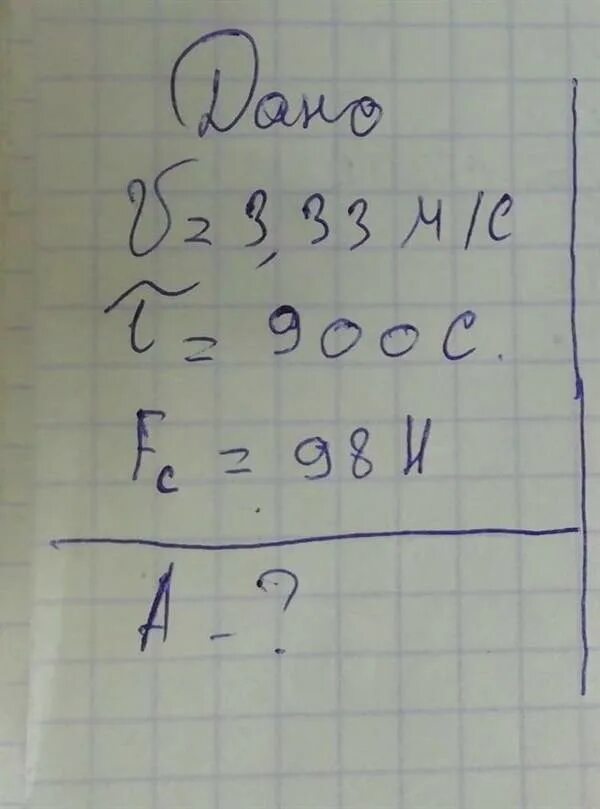 Дано
v = 3,33 м/с
τ = 900 с.
Fc = 98 Н
A - ?